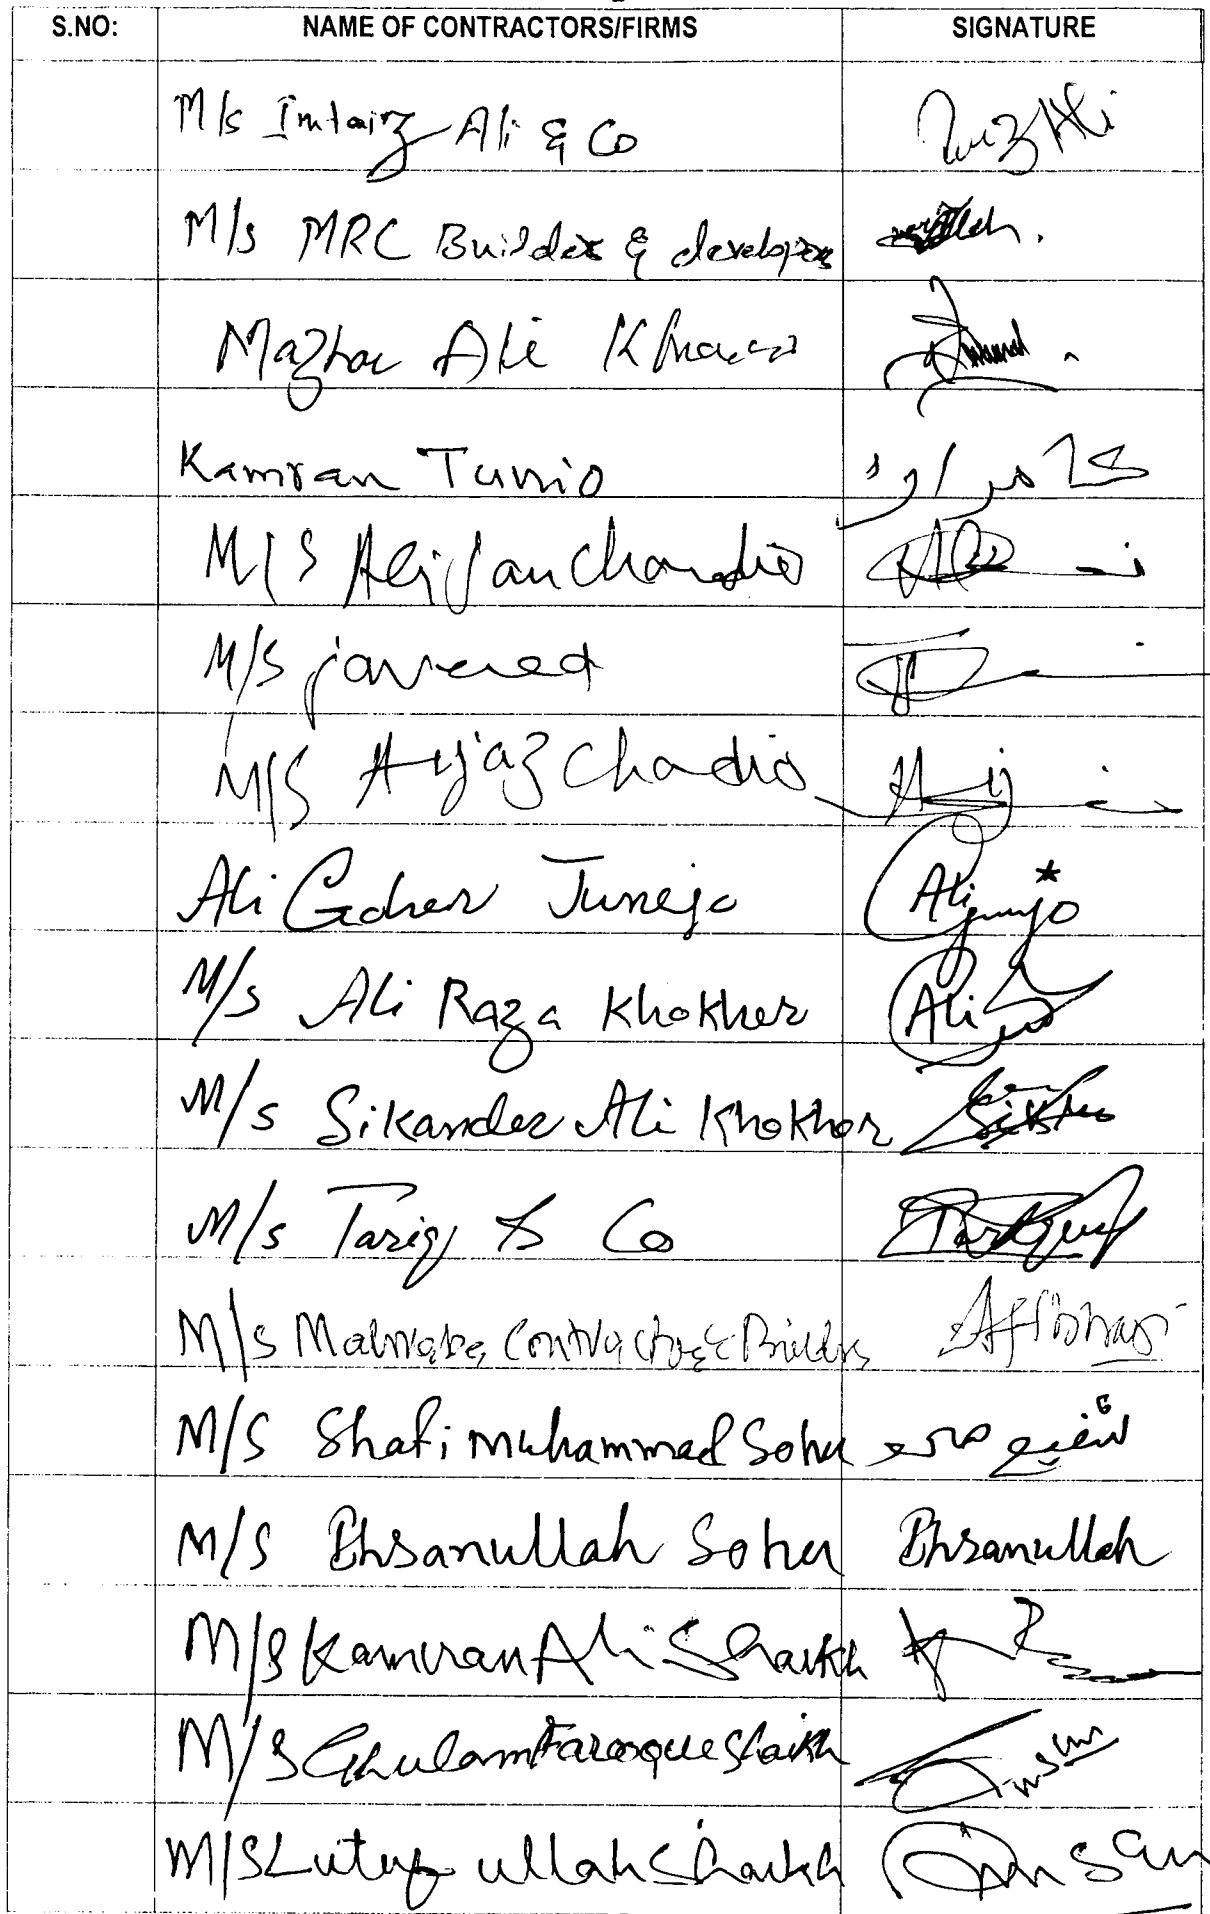 S.NO: NAME OF CONTRACTORS/FIRMS SIGNATURE
M/s Imtaiz Ali & Co
M/s MRC Builder & developers
Mazhar Ali
Kamran Tunio کامران
M/S Ali Jan Chandio
M/S javeed
M/S Aijaz Chadio
Ali Goher Junejo Ali
M/s Ali Raza Khokher Ali
M/s Sikander Ali Khokhor
M/s Tariq & Co
M/s Contractor & Builders
M/S Shafi Muhammad Sohu شفيع محمد
M/S Ehsanullah Sohu Ehsanullah
M/S Kamran Ali Shaikh
M/S Ghulam Farooque Shaikh
M/S Lutuf ullah Shaikh